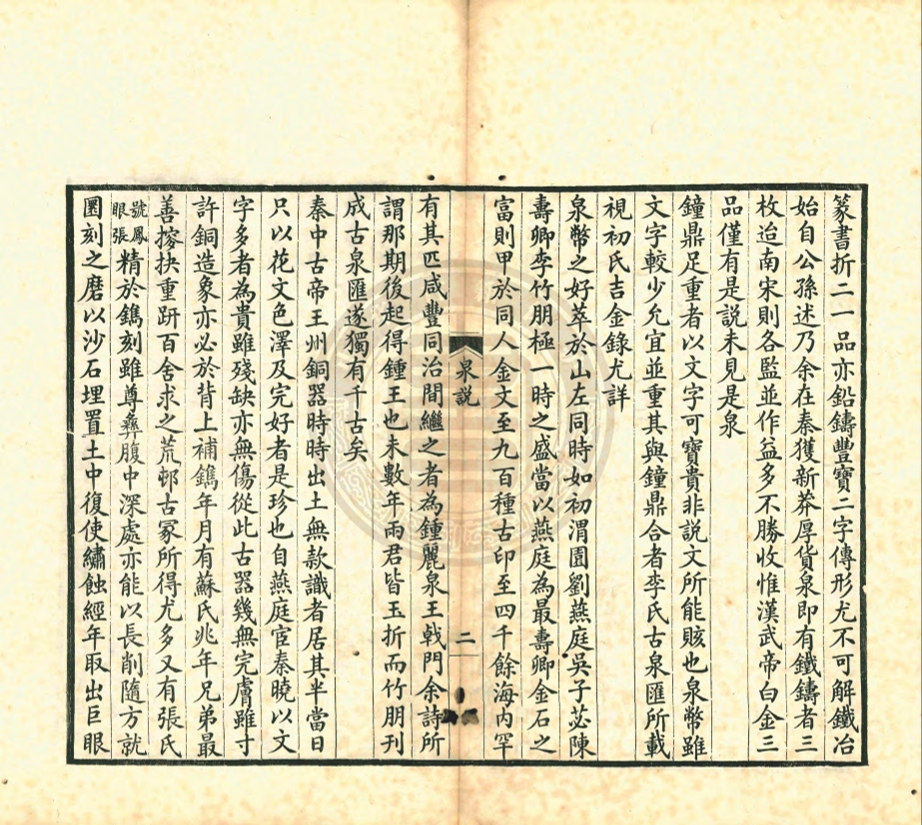 篆書折二一品亦鉛鑄豐寶二字傳形尤不可解鐵冶
始自公孫述乃余在秦獲新莽厚貨泉即有鐵鑄者三
枚迨南宋則各監並作益多不勝收惟漢武帝白金三
品僅有是說未見是泉
鐘鼎足重者以文字可寶貴非說文所能賅也泉幣雖
文字較少允宜並重其與鐘鼎合者李氏古泉匯所載
視初氏吉金錄尤詳
泉幣之好萃於山左同時如初渭園劉燕庭吳子苾陳
壽卿李竹朋極一時之盛當以燕庭為最壽卿金石之
富則甲於同人金文至九百種古印至四千餘海內罕
泉說
二
有其匹咸豐同治間繼之者為鍾麗泉王戟門余詩所
謂那期後起得鍾王也未數年兩君皆玉折而竹朋刊
成古泉匯遂獨有千古矣
秦中古帝王州銅器時時出土無款識者居其半當日
只以花文色澤及完好者是珍也自燕庭宦秦曉以文
字多者為貴雖殘缺亦無傷從此古器幾無完膚雖寸
許銅造象亦必於背上補鐫年月有蘇氏兆年兄弟最
善摉抉重趼百舍求之荒邨古冢所得尤多又有張氏
號鳳眼張精於鐫刻雖尊彝腹中深處亦能以長削隨方就
圜刻之磨以沙石埋置土中復使繡蝕經年取出巨眼